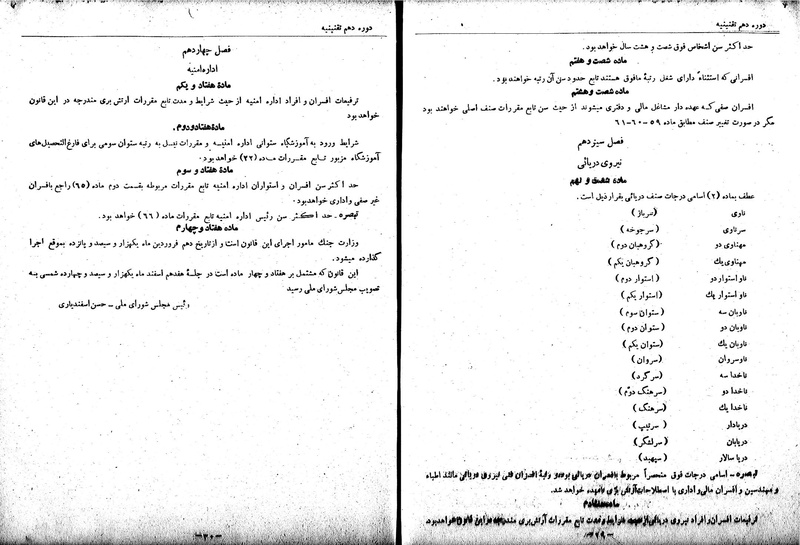 دوره دهم تقنینیه
حد اکثر سن اشخاص فوق شصت و هشت سال خواهد بود.
ماده شصت و هفتم
افسرانی که استثناءً دارای شغل رتبهٔ مافوق هستند تابع حدود سن آن رتبه خواهند بود.
ماده شصت و هشتم
افسران صفی که عهده دار مشاغل مالی و دفتری میشوند از حیث سن تابع مقررات صنف اصلی خواهند بود
مگر در صورت تغییر صنف مطابق ماده ۵۹-۶۰-۶۱
فصل سیزدهم
نیروی دریائی
ماده شصت و نهم
عطف بماده (۲) اسامی درجات صنف دریائی بقرار ذیل است.
ناوی (سرباز)
سرناوی (سرجوخه)
مهناوی دو (گروهبان دوم)
مهناوی یک (گروهبان یکم)
ناو استوار دو (استوار دوم)
ناو استوار یک (استوار یکم)
ناوبان سه (ستوان سوم)
ناوبان دو (ستوان دوم)
ناوبان یک (ستوان یکم)
ناوسروان (سروان)
ناخدا سه (سرگرد)
ناخدا دو (سرهنگ دوم)
ناخدا یک (سرهنگ)
دریادار (سرتیپ)
دریابان (سرلشگر)
دریا سالار (سپهبد)
تبصره- اسامی درجات فوق منحصراً مربوط بافسران دریائی بوده و رتبهٔ افسران فنی نیروی دریائی مانند اطباء
و مهندسین و افسران مالی و اداری با اصطلاحات ارتش بری نامیده خواهد شد.
ماده هفتادم
ترفیعات افسران و افراد نیروی دریائی از حیث شرایط و مدت تابع مقررات ارتش بری مندرجه در این قانون خواهد بود.
-۲۹-
دوره دهم تقنینیه
فصل چهاردهم
اداره امنیه
مادهٔ هفتاد و یکم
ترفیعات افسران و افراد اداره امنیه از حیث شرایط و مدت تابع مقررات ارتش بری مندرجه در این قانون
خواهد بود
مادهٔ هفتاد و دوم.
شرایط ورود به آموزشگاه ستوانی اداره امنیه و مقررات نیل به رتبه ستوان سومی برای فارغ التحصیل‌های
آموزشگاه مزبور تابع مقررات ماده (۲۲) خواهد بود.
مادهٔ هفتاد و سوم
حد اکثر سن افسران و استواران اداره امنیه تابع مقررات مربوطه بقسمت دوم ماده (۶۵) راجع بافسران
غیر صفی و اداری خواهد بود.
تبصره. حد اکثر سن رئیس اداره امنیه تابع مقررات ماده (۶۶) خواهد بود.
ماده هفتاد و چهارم
وزارت جنگ مامور اجرای این قانون است و از تاریخ دهم فروردین ماه یکهزار و سیصد و پانزده بموقع اجرا
گذارده میشود.
این قانون که مشتمل بر هفتاد و چهار ماده است در جلسهٔ هفدهم اسفند ماه یکهزار و سیصد و چهارده شمسی به
تصویب مجلس شورای ملی رسید
رئیس مجلس شورای ملی - حسن اسفندیاری
-۳۰-